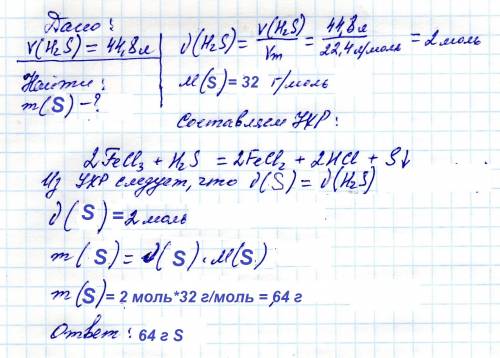 Дано:
V(H₂S) = 44,8 л
Найти:
m(S) - ?
ν(H₂S) = V(H₂S)/Vm = 44,8 л/22,4 л/моль = 2 моль
M(S) = 32 г/моль
Составляем УХР:
2FeCl₃ + H₂S = 2FeCl₂ + 2HCl + S↓
Из УХР следует, что ν(S) = ν(H₂S)
ν(S) = 2 моль
m(S) = ν(S) · M(S)
m(S) = 2 моль*32 г/моль = 64 г
Ответ: 64 г S